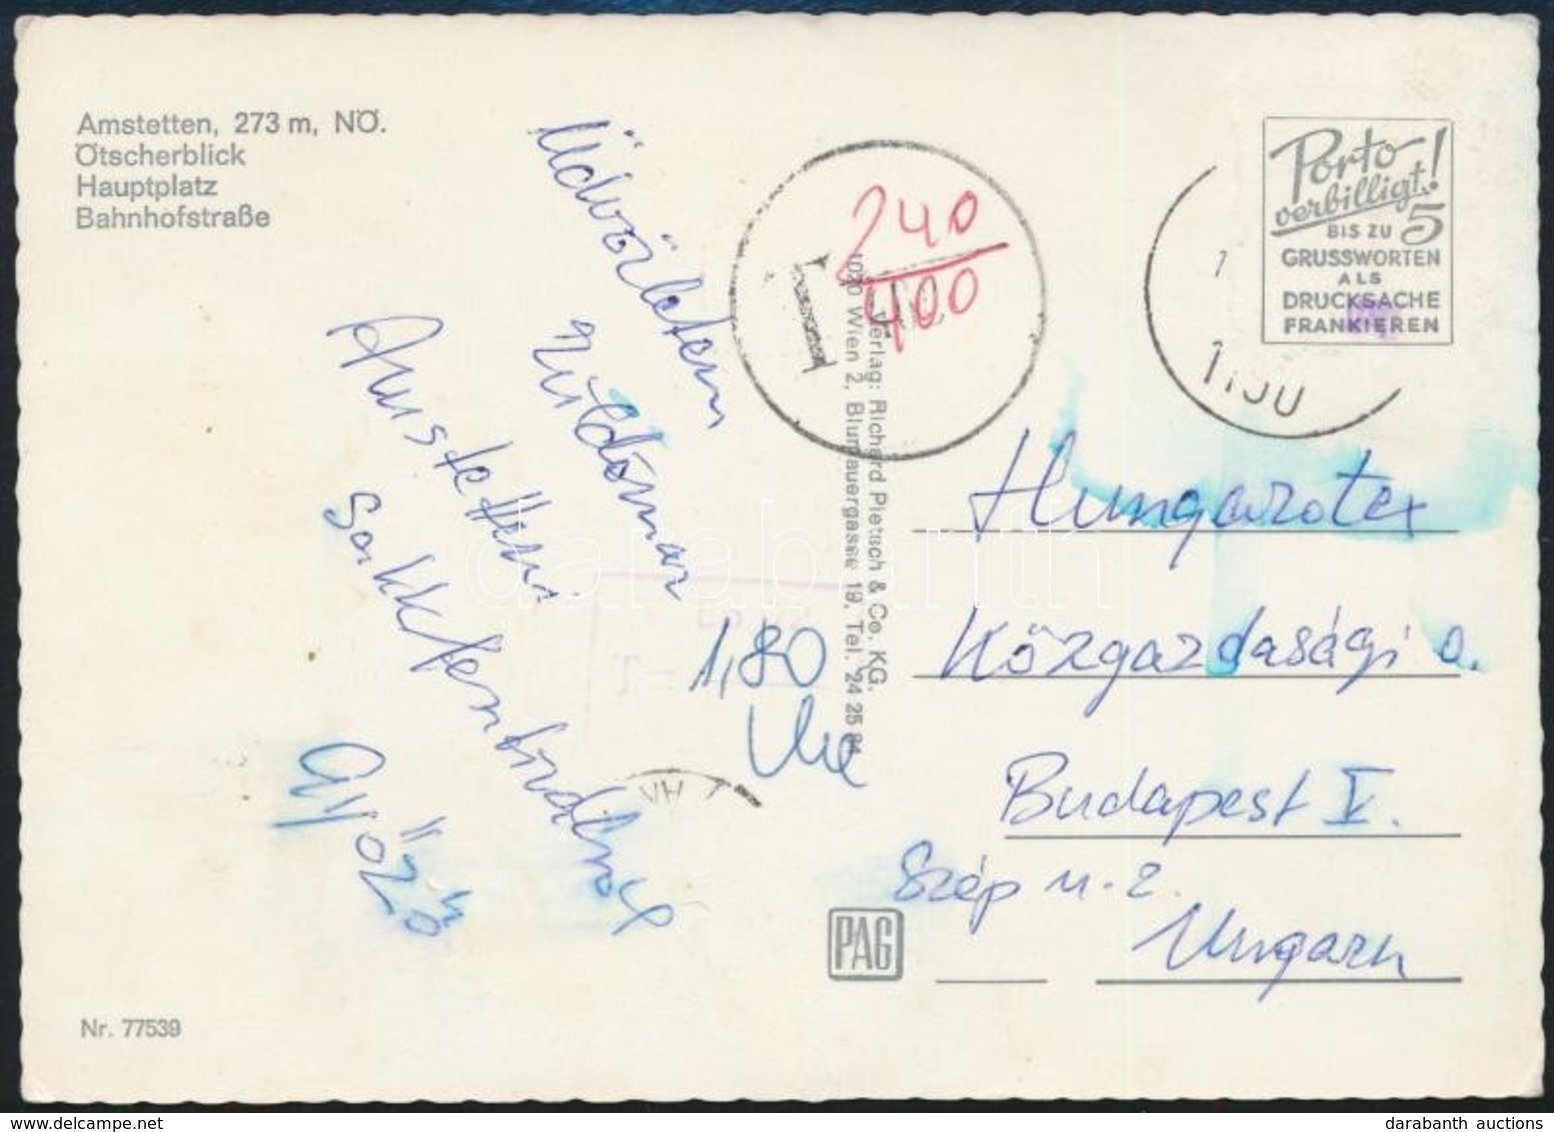 Amstetten, 273 m, NÖ.
Ötscherblick
Hauptplatz
Bahnhofstraße
Üdvözletem
küldöm az
Amstetteni
Sakktenbradról
Győző
240
400
T
Verlag: Richard Pietsch & Co. KG.
1020 Wien 2, Blumauergasse 19. Tel. 24 25 84
1,80
T =
Porto
verbilligt!
BIS ZU 5
GRUSSWORTEN
ALS
DRUCKSACHE
FRANKIEREN
Hungarotex
Közgazdasági o.
Budapest V.
Szép u. 2.
Ungarn
PAG
Nr. 77539
darabanth
darabanth auctions